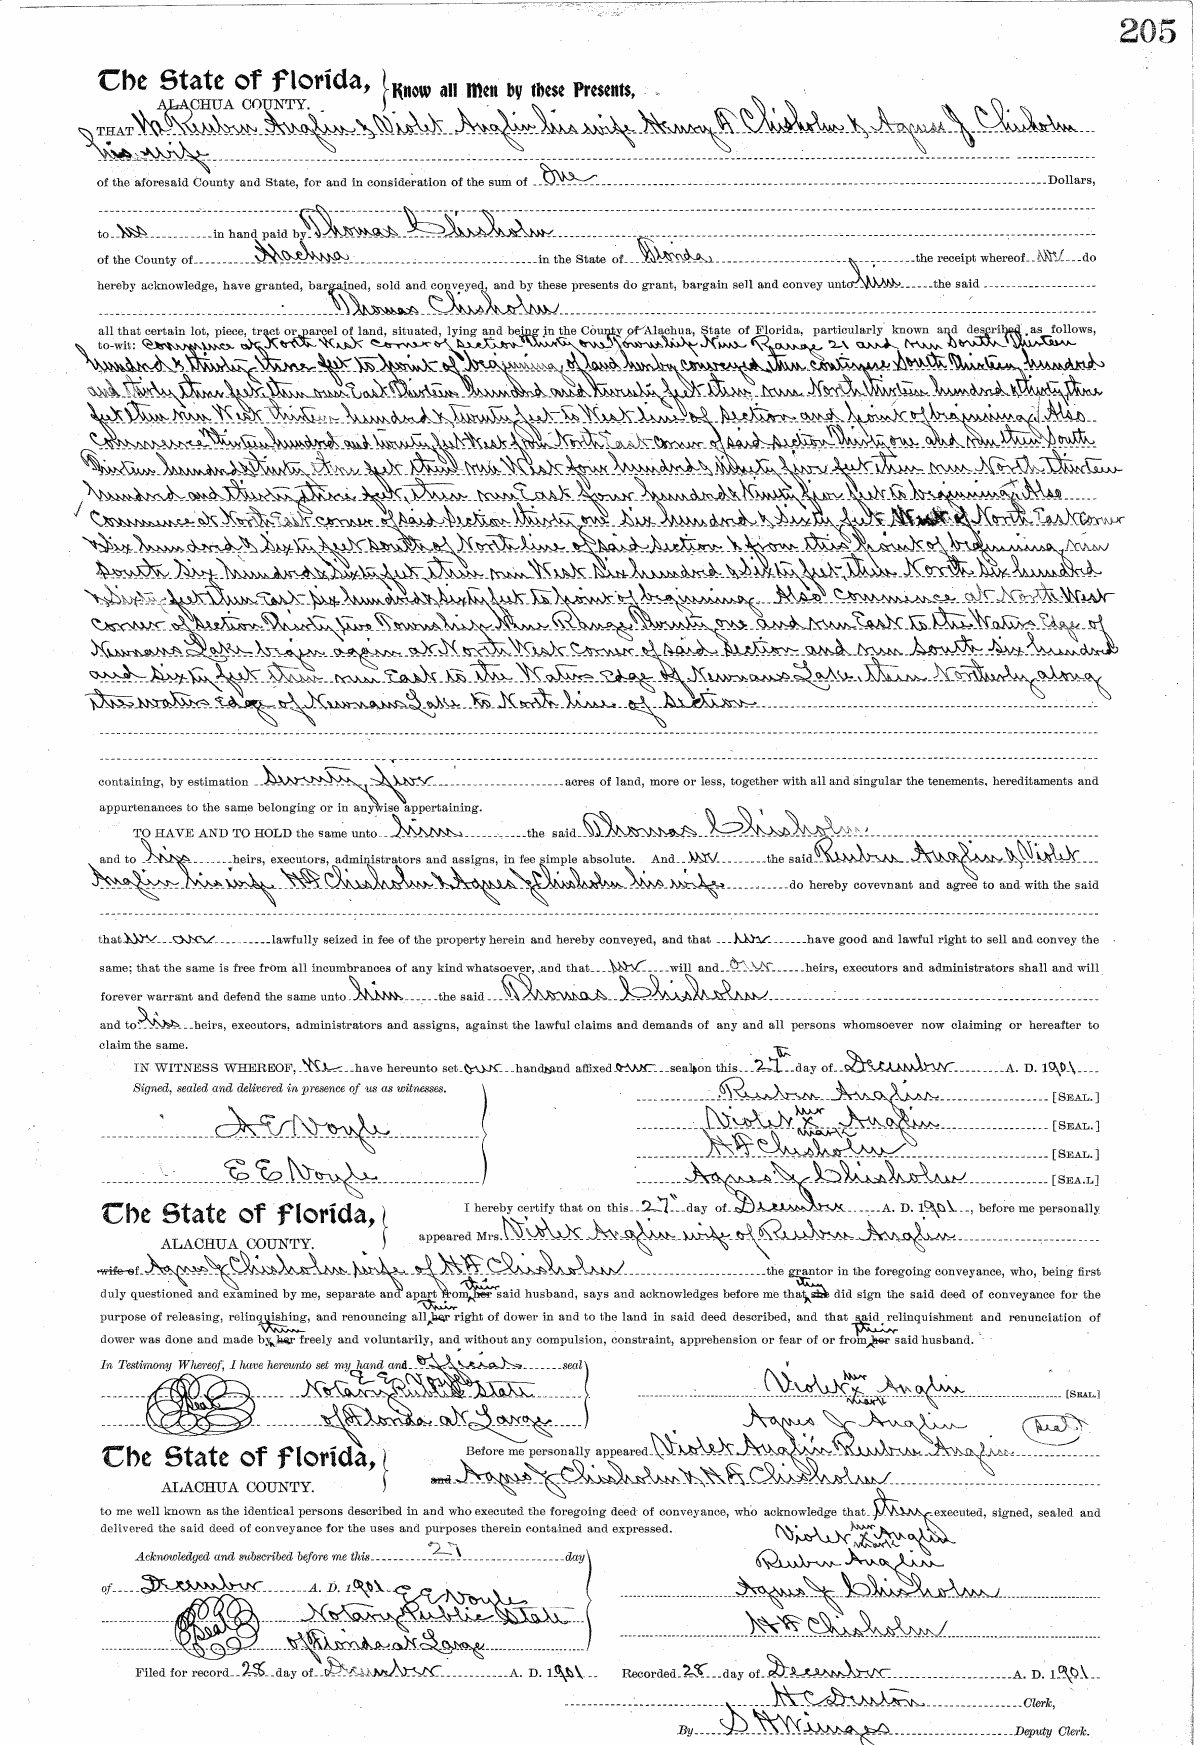 205
The State of Florida, Know all Men by these Presents,
ALACHUA COUNTY.
THAT We Reuben Anglin & Violet Anglin his wife Henry F Chisholm & Agnes J Chisholm
his wife
of the aforesaid County and State, for and in consideration of the sum of One Dollars,
to us in hand paid by Thomas Chisholm
of the County of Alachua in the State of Florida, the receipt whereof we do
hereby acknowledge, have granted, bargained, sold and conveyed, and by these presents do grant, bargain sell and convey unto him the said
Thomas Chisholm
all that certain lot, piece, tract or parcel of land, situated, lying and being in the County of Alachua, State of Florida, particularly known and described as follows,
to-wit: Commence at North West corner of Section Thirty one Township Nine Range 21 and run South Thirteen
hundred & thirty three feet to point of beginning of land hereby conveyed then continue South Thirteen hundred
and thirty three feet then run East Thirteen hundred and twenty feet then run North thirteen hundred & thirty three
feet then run West thirteen hundred & twenty feet to West line of section and point of beginning, Also
Commence Thirteen hundred and twenty feet West from North East corner of said section Thirty one and run then South
Thirteen hundred & thirty three feet then run West four hundred & Ninety five feet then run North Thirteen
hundred and thirty three feet, then run East four hundred & Ninety five feet to beginning, Also
Commence at North East corner of said section thirty one six hundred & sixty feet West of North East corner
& six hundred & sixty feet south of North line of said section & from this point of beginning run
South six hundred & sixty feet then run West six hundred & sixty feet then North six hundred
& sixty feet then East six hundred & sixty feet to point of beginning. Also Commence at North West
corner of Section Thirty two Township Nine Range Twenty one and run East to the Waters Edge of
Newnans Lake begin again at North West corner of said section and run South six hundred
and sixty feet then run East to the Waters Edge of Newnans Lake, then Northerly along
the waters Edge of Newnans Lake to North line of section
containing, by estimation Seventy five acres of land, more or less, together with all and singular the tenements, hereditaments and
appurtenances to the same belonging or in anywise appertaining.
TO HAVE AND TO HOLD the same unto him the said Thomas Chisholm
and to his heirs, executors, administrators and assigns, in fee simple absolute. And we the said Reuben Anglin & Violet
Anglin his wife H F Chisholm & Agnes J Chisholm his wife do hereby covevnant and agree to and with the said
that we are lawfully seized in fee of the property herein and hereby conveyed, and that we have good and lawful right to sell and convey the
same; that the same is free from all incumbrances of any kind whatsoever, and that we will and our heirs, executors and administrators shall and will
forever warrant and defend the same unto him the said Thomas Chisholm
and to his heirs, executors, administrators and assigns, against the lawful claims and demands of any and all persons whomsoever now claiming or hereafter to
claim the same.
IN WITNESS WHEREOF, We have hereunto set our hands and affixed our seals on this 27th day of December A. D. 1901
Signed, sealed and delivered in presence of us as witnesses. Reuben Anglin [SEAL.]
A E Voyle Violet her x mark Anglin [SEAL.]
H F Chisholm [SEAL.]
E E Voyle Agnes J Chisholm [SEA.L]
The State of Florida, I hereby certify that on this 27" day of December A. D. 1901, before me personally
ALACHUA COUNTY. appeared Mrs. Violet Anglin wife of Reuben Anglin
wife of Agnes J Chisholm wife of H F Chisholm the grantor in the foregoing conveyance, who, being first
duly questioned and examined by me, separate and apart from her their said husband, says and acknowledges before me that she they did sign the said deed of conveyance for the
purpose of releasing, relinquishing, and renouncing all her their right of dower in and to the land in said deed described, and that said relinquishment and renunciation of
dower was done and made by her them freely and voluntarily, and without any compulsion, constraint, apprehension or fear of or from her their said husband.
In Testimony Whereof, I have hereunto set my hand and official seal
E E Voyle
Seal Notary Public State Violet her x mark Anglin [SEAL]
of Florida at Large Agnes J Anglin Seal
The State of Florida, Before me personally appeared Violet Anglin Reuben Anglin
ALACHUA COUNTY. and Agnes J Chisholm & H F Chisholm
to me well known as the identical persons described in and who executed the foregoing deed of conveyance, who acknowledge that they executed, signed, sealed and
delivered the said deed of conveyance for the uses and purposes therein contained and expressed.
Violet her x mark Anglin
Acknowledged and subscribed before me this 27 day Reuben Anglin
of December A. D. 1901 E E Voyle Agnes J Chisholm
Seal Notary Public State H F Chisholm
of Florida at Large
Filed for record 28 day of December A. D. 1901 Recorded 28 day of December A. D. 1901
H C Denton Clerk,
By S H Wienges Deputy Clerk.